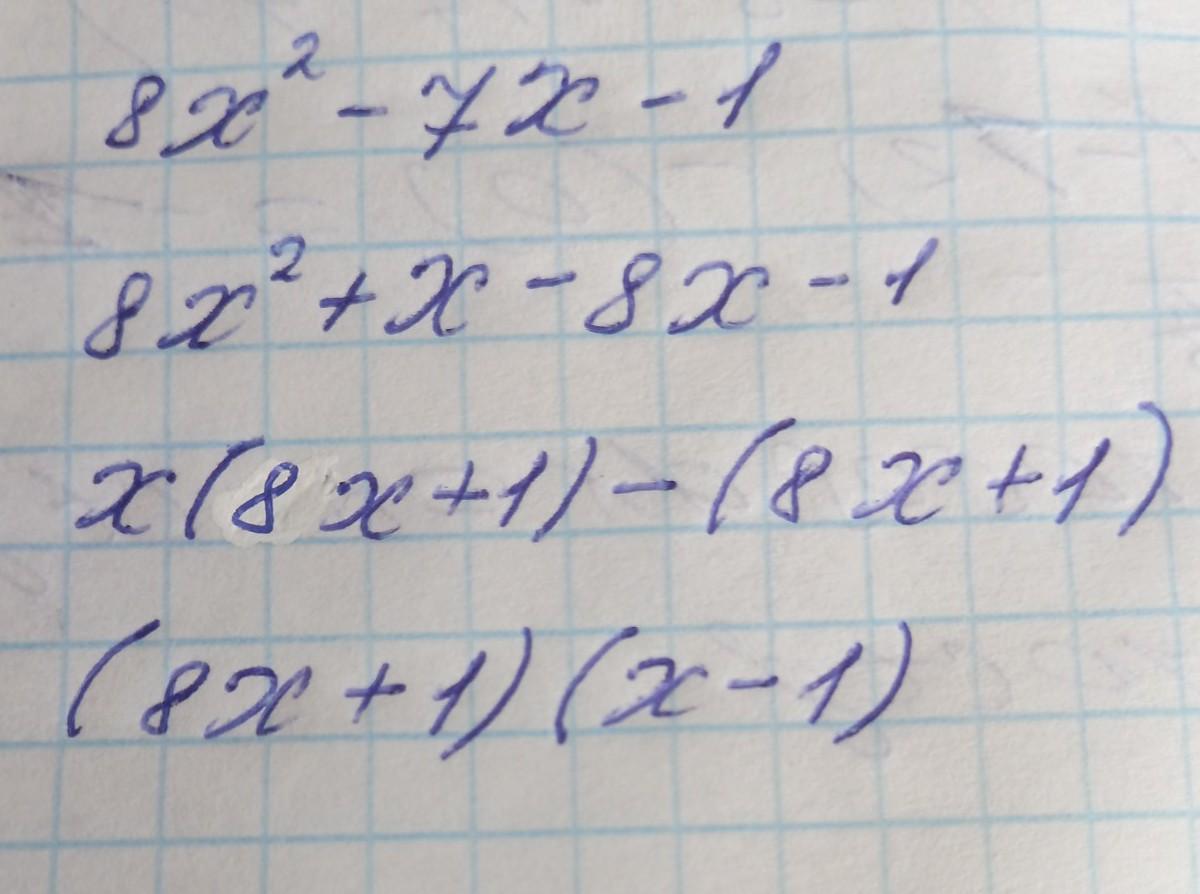 8x² - 7x - 1
8x² + x - 8x - 1
x(8x+1) - (8x+1)
(8x+1)(x-1)